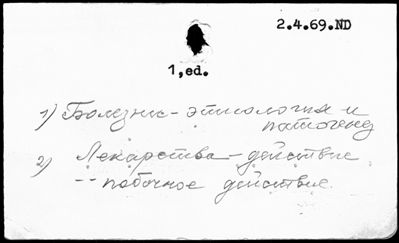 2.4.69.ND
1,ed.
1) Болезни - этиология и
патогенез
2) Лекарства - действие
-- побочное действие.